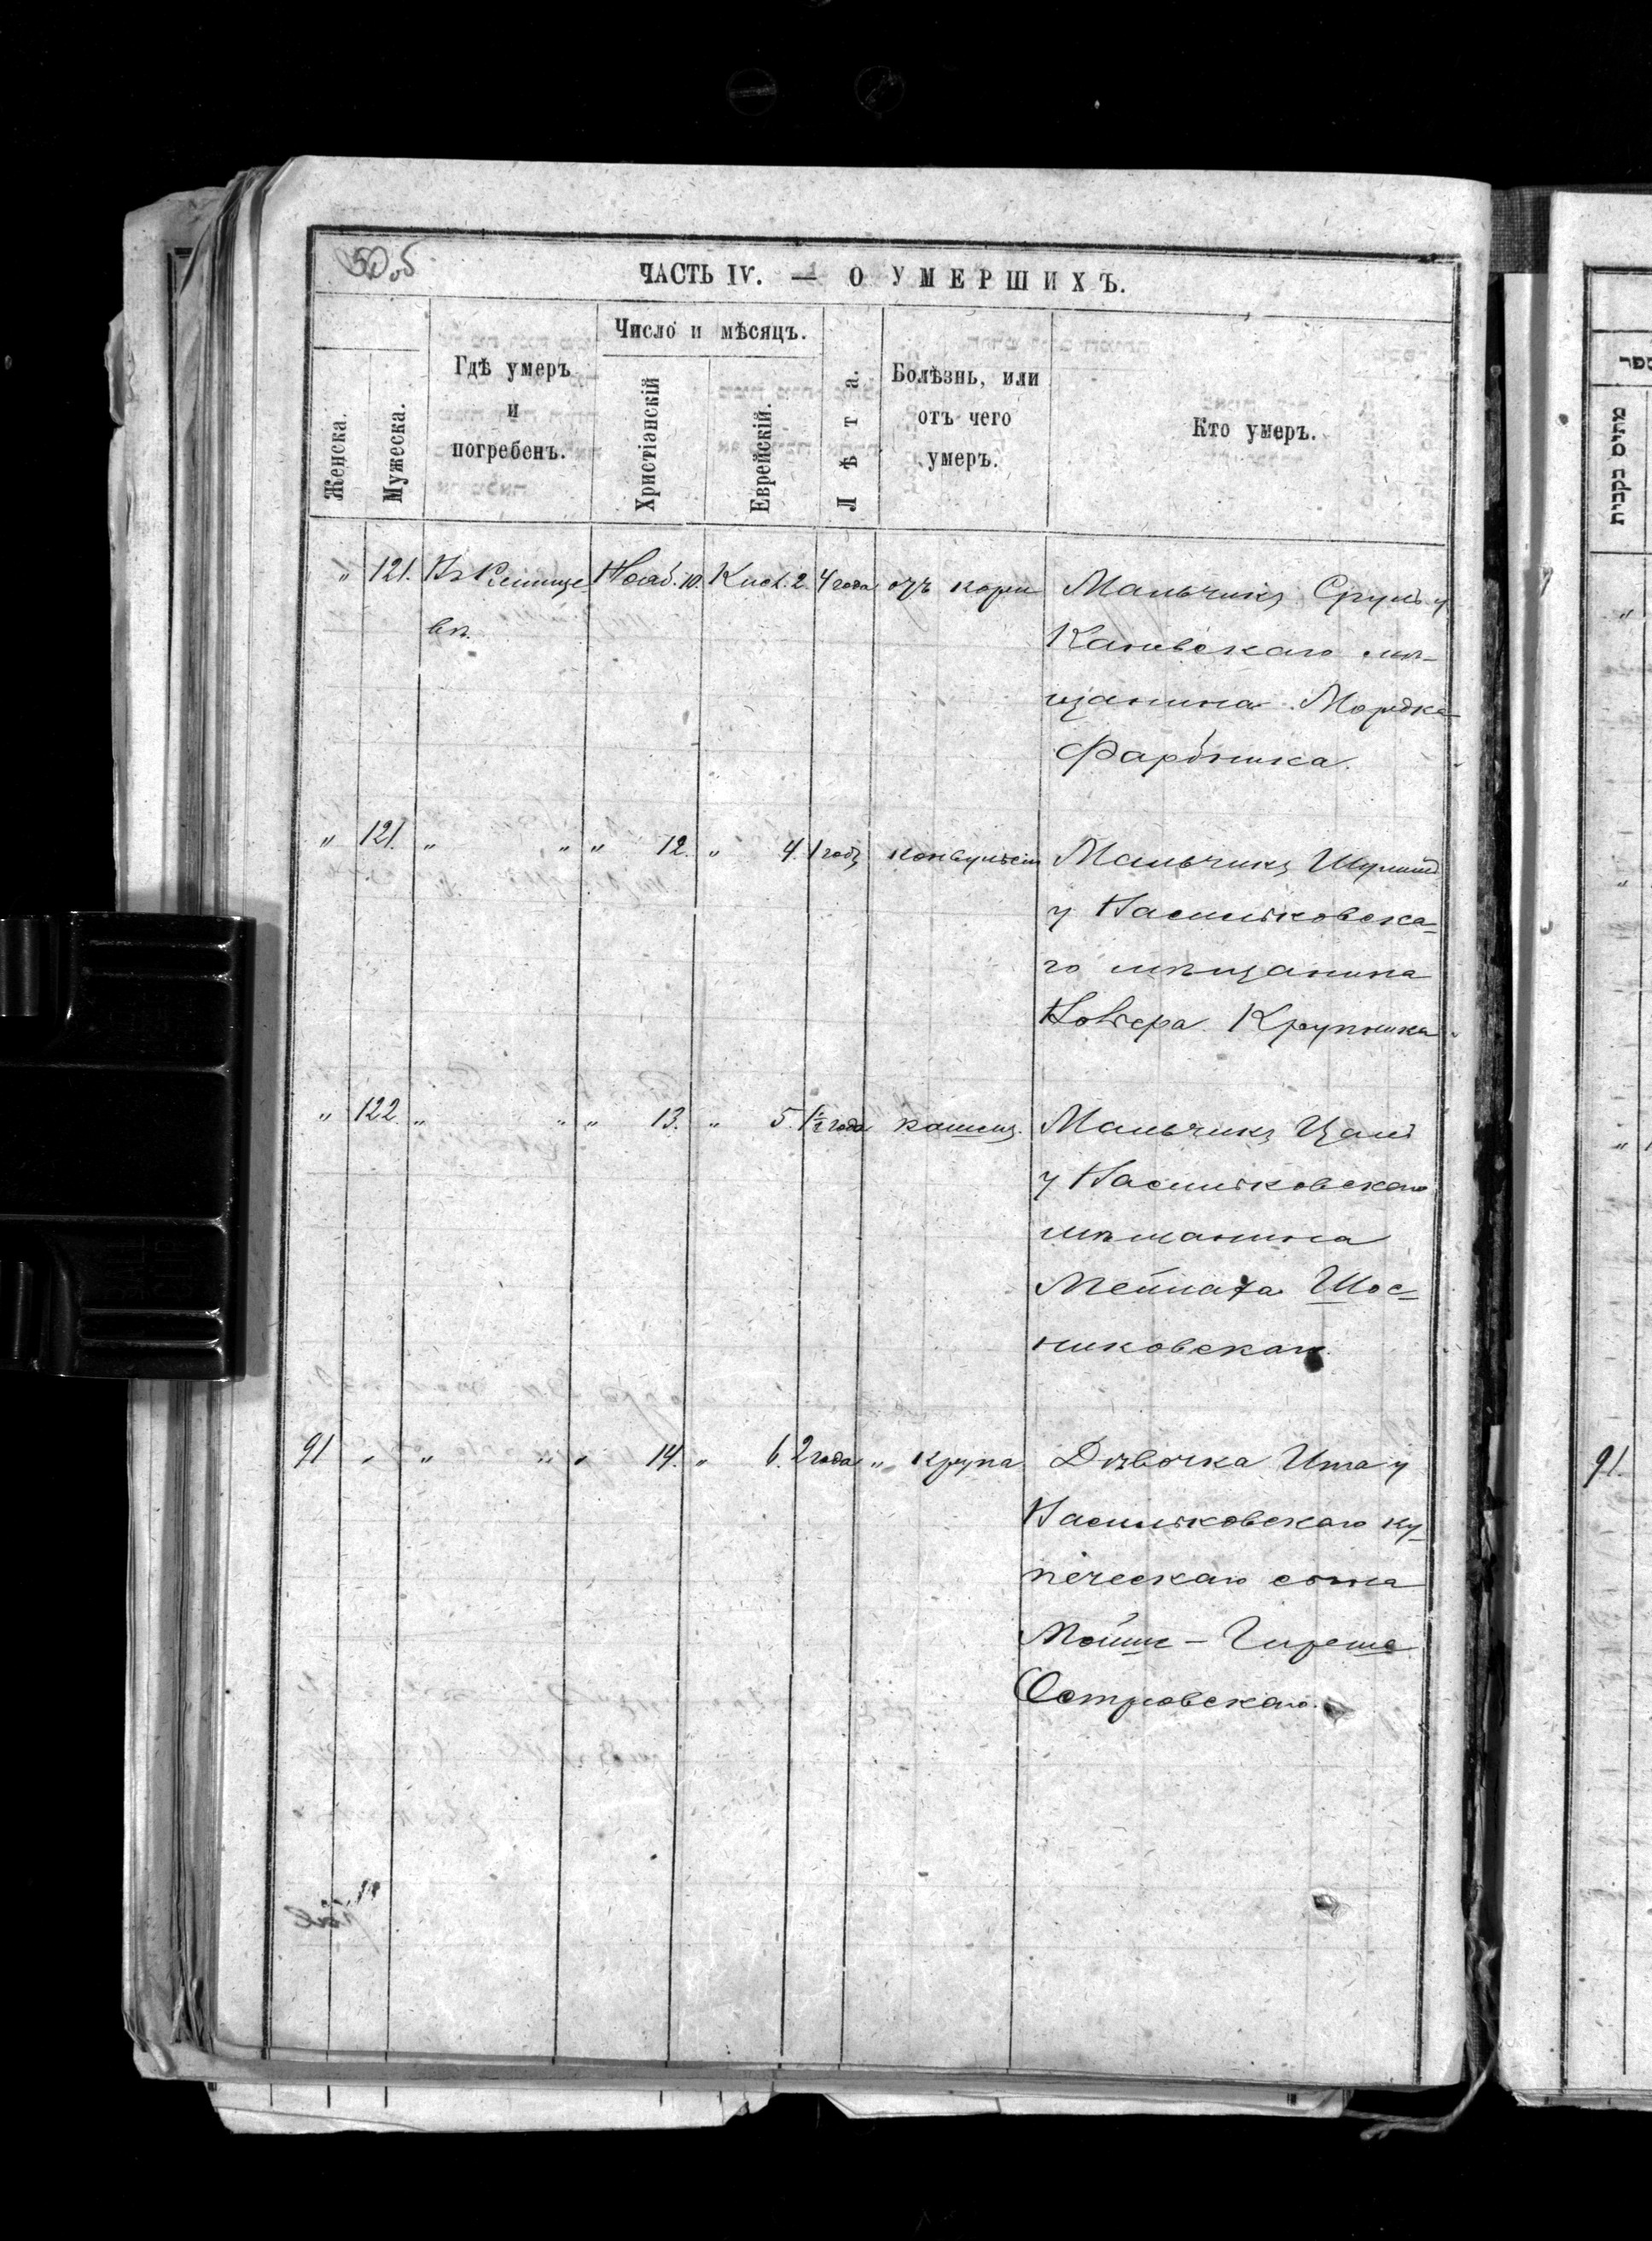 50 об
ЧАСТЬ IV. — О УМЕРШИХЪ.
Женска.
Мужеска.
Гдѣ умеръ
и
погребенъ.
Число и мѣсяцъ.
Христіанскій
Еврейскій.
Лѣта.
Болѣзнь, или
отъ чего
умеръ.
Кто умеръ.
" 121. Нояб. 10. Кисл. 2. 4 года отъ кори Мальчикъ Сруль у
вѣ.
Каневскаго мѣ-
щанина Мордка
Фарбника.
" 121. " " " 12. " 4. 1 годъ конвульсіи Мальчикъ
у Васильковска-
го мѣщанина
Крупника
" 122. " " " 13. " 5. 1½ года кашель. Мальчикъ
у Васильковскаго
мѣщанина
Шос-
никовскаго.
91 " " " " 14. " 6. 2 года " крупа Дѣвочка Ита у
Васильковскаго ку-
печескаго сына
Мойше-Гирша
Островскаго.
מתים נקבות
91.